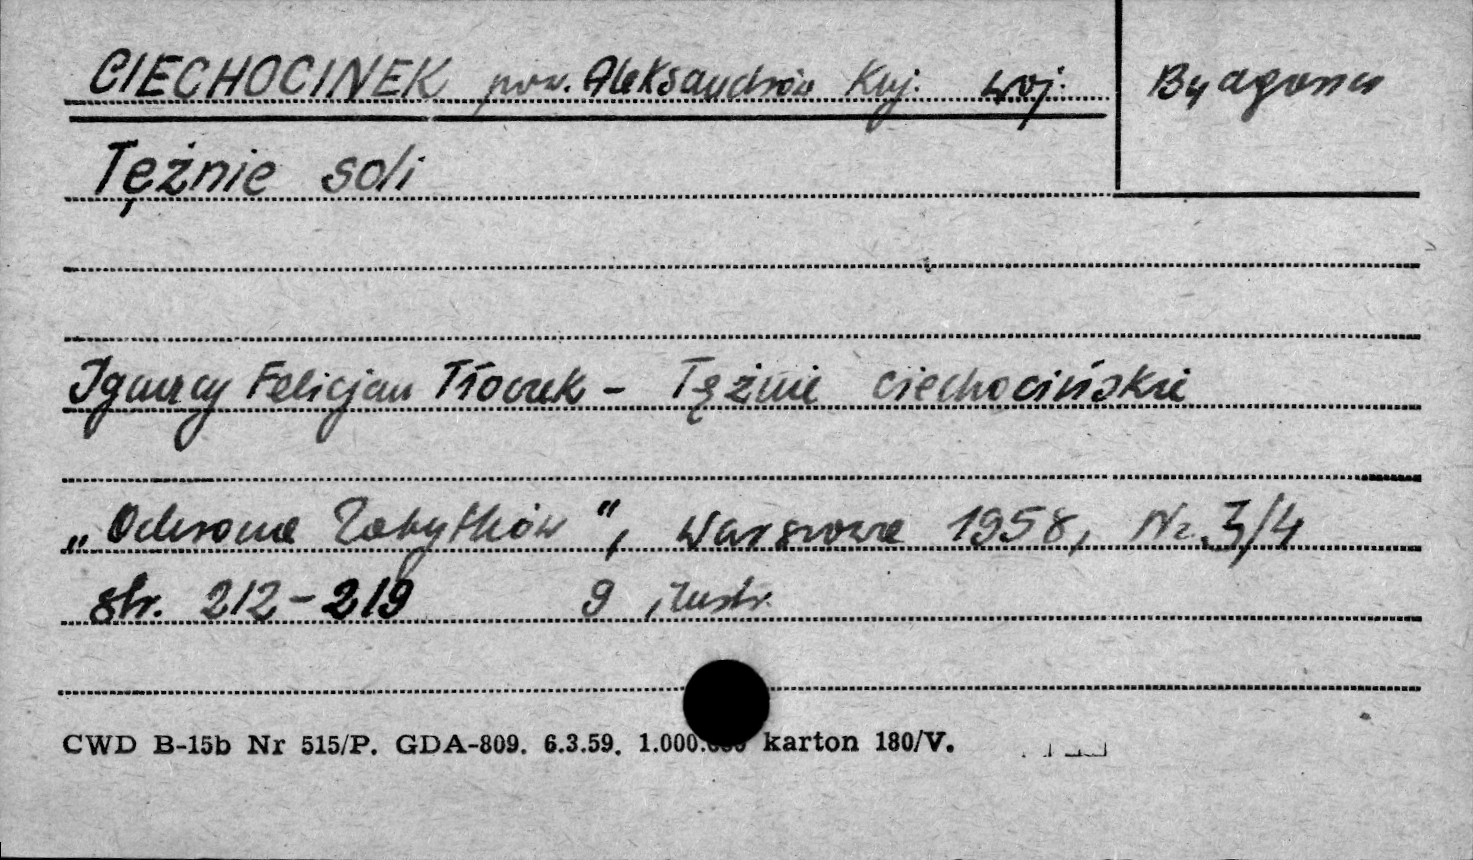 CIECHOCINEK pow. Aleksandrów Kuj. woj. Bydgoszcz
Tężnie soli
Ignacy Felicjan Tłoczek - Tężnie ciechocińskie
„Ochrona Zabytków", Warszawa 1958, Nr. 3/4
str. 212-219 9 ilustr.
CWD B-15b Nr 515/P. GDA-809. 6.3.59. 1.000.000 karton 180/V.